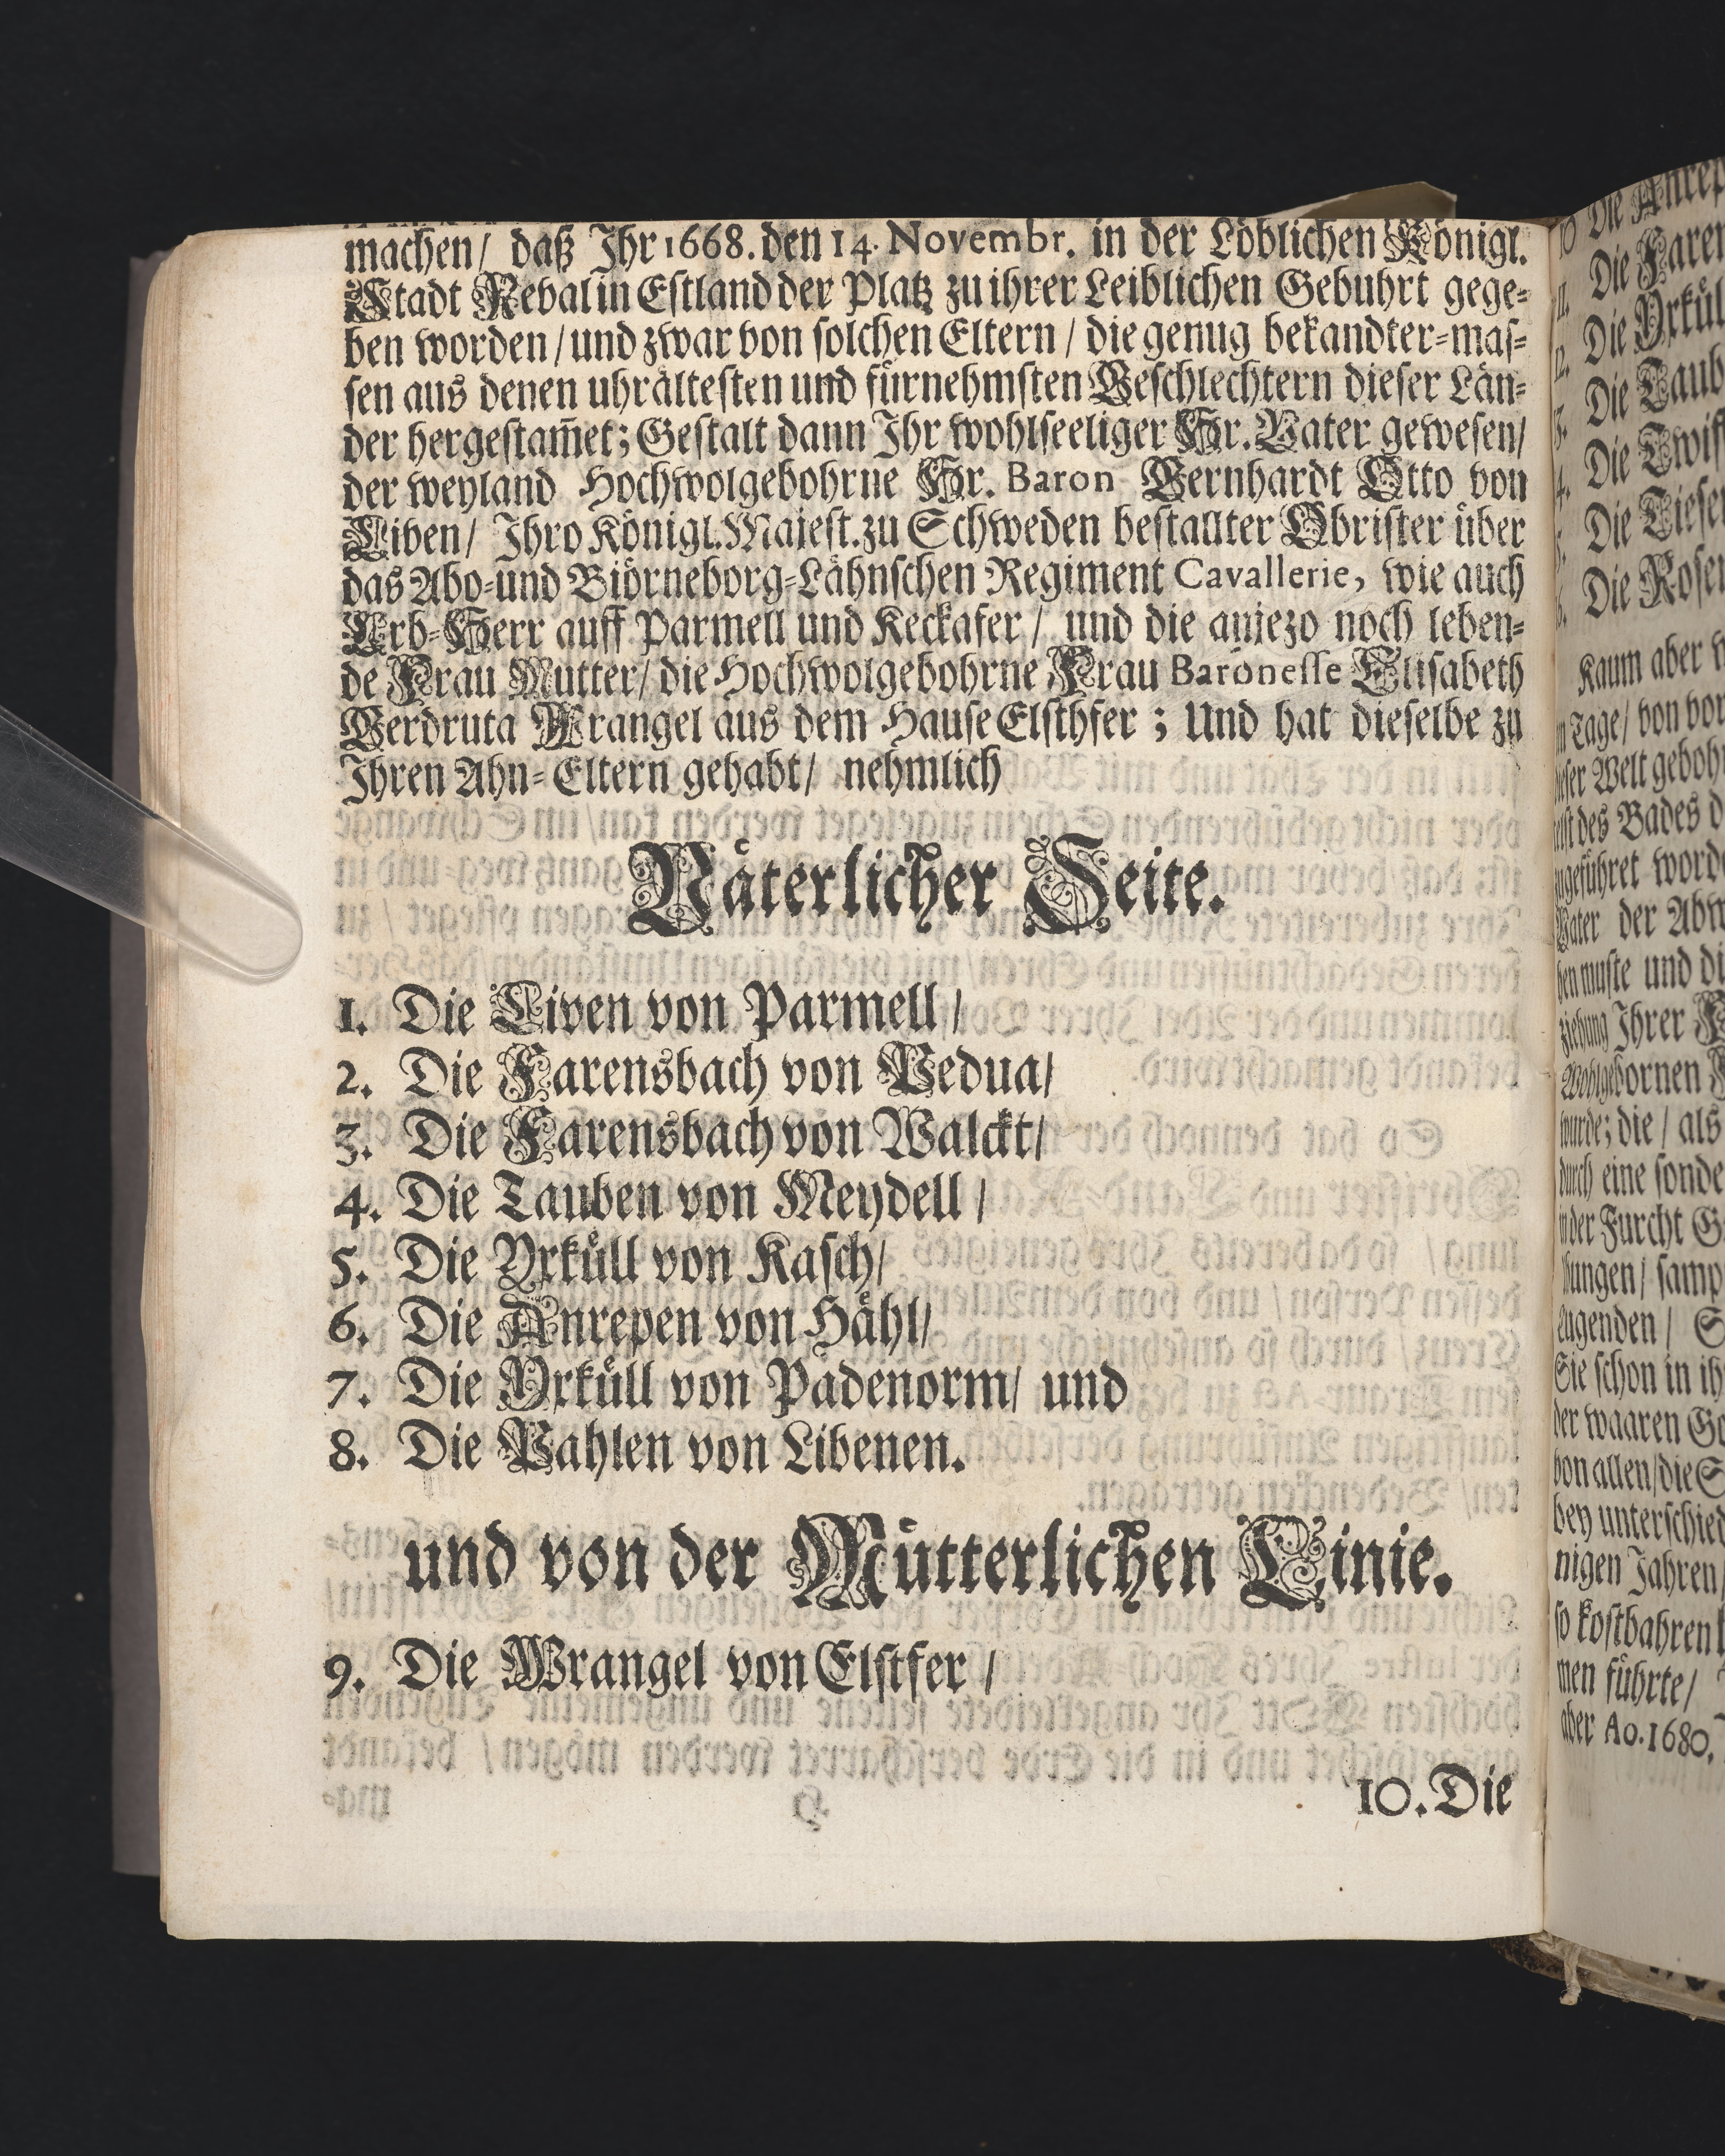 machen/ daß Ihr 1668. den 14. Novembr. in der Löblichen Königl.
Stadt Reval in Estland der Platz zu ihrer Leiblichen Gebuhrt gege-
ben worden/ und zwar von solchen Eltern/ die genug bekandter-mas-
sen aus denen uhrältesten und fürnehmsten Geschlechtern dieser Län-
der hergestam̃et; Gestalt dann Ihr wohlseeliger Hr. Vater gewesen/
der weyland Hochwolgebohrne Hr. Baron Bernhardt Otto von
Liven/ Ihro Königl. Majest. zu Schweden bestallter Obrister über
das Abo-und Biörneborg-Lähnschen Regiment Cavallerie, wie auch
Erb-Herr auff Parmell und Keckafer/ und die anjezo noch leben-
de Frau Mutter/ die Hochwolgebohrne Frau Baronesse Elisabeth
Gerdruta Wrangel aus dem Hause Elsthfer; Und hat dieselbe zu
Ihren Ahn-Eltern gehabt/ nehmlich
Väterlicher Seite.
1. Die Liven von Parmell/
2. Die Farensbach von Nedua/
3. Die Farensbach von Walckt/
4. Die Tauben von Meydell/
5. Die Yrküll von Kasch/
6. Die Anrepen von Hähl/
7. Die Yrküll von Padenorm/ und
8. Die Pahlen von Libenen.
und von der Mütterlichen Linie.
9. Die Wrangel von Elstfer/
10. Die
Die
Die
Die
Die Taub
Die
Die
Die
Kaum aber
Tage/ von
Welt
des Bades
Vater der
muste und
Ihrer
die/ als
eine
der Furcht
samp
Sie schon in
der waaren
von allen/ die
bey
nigen Jahren/
so kostbahren
führte/
aber Ao. 1680.